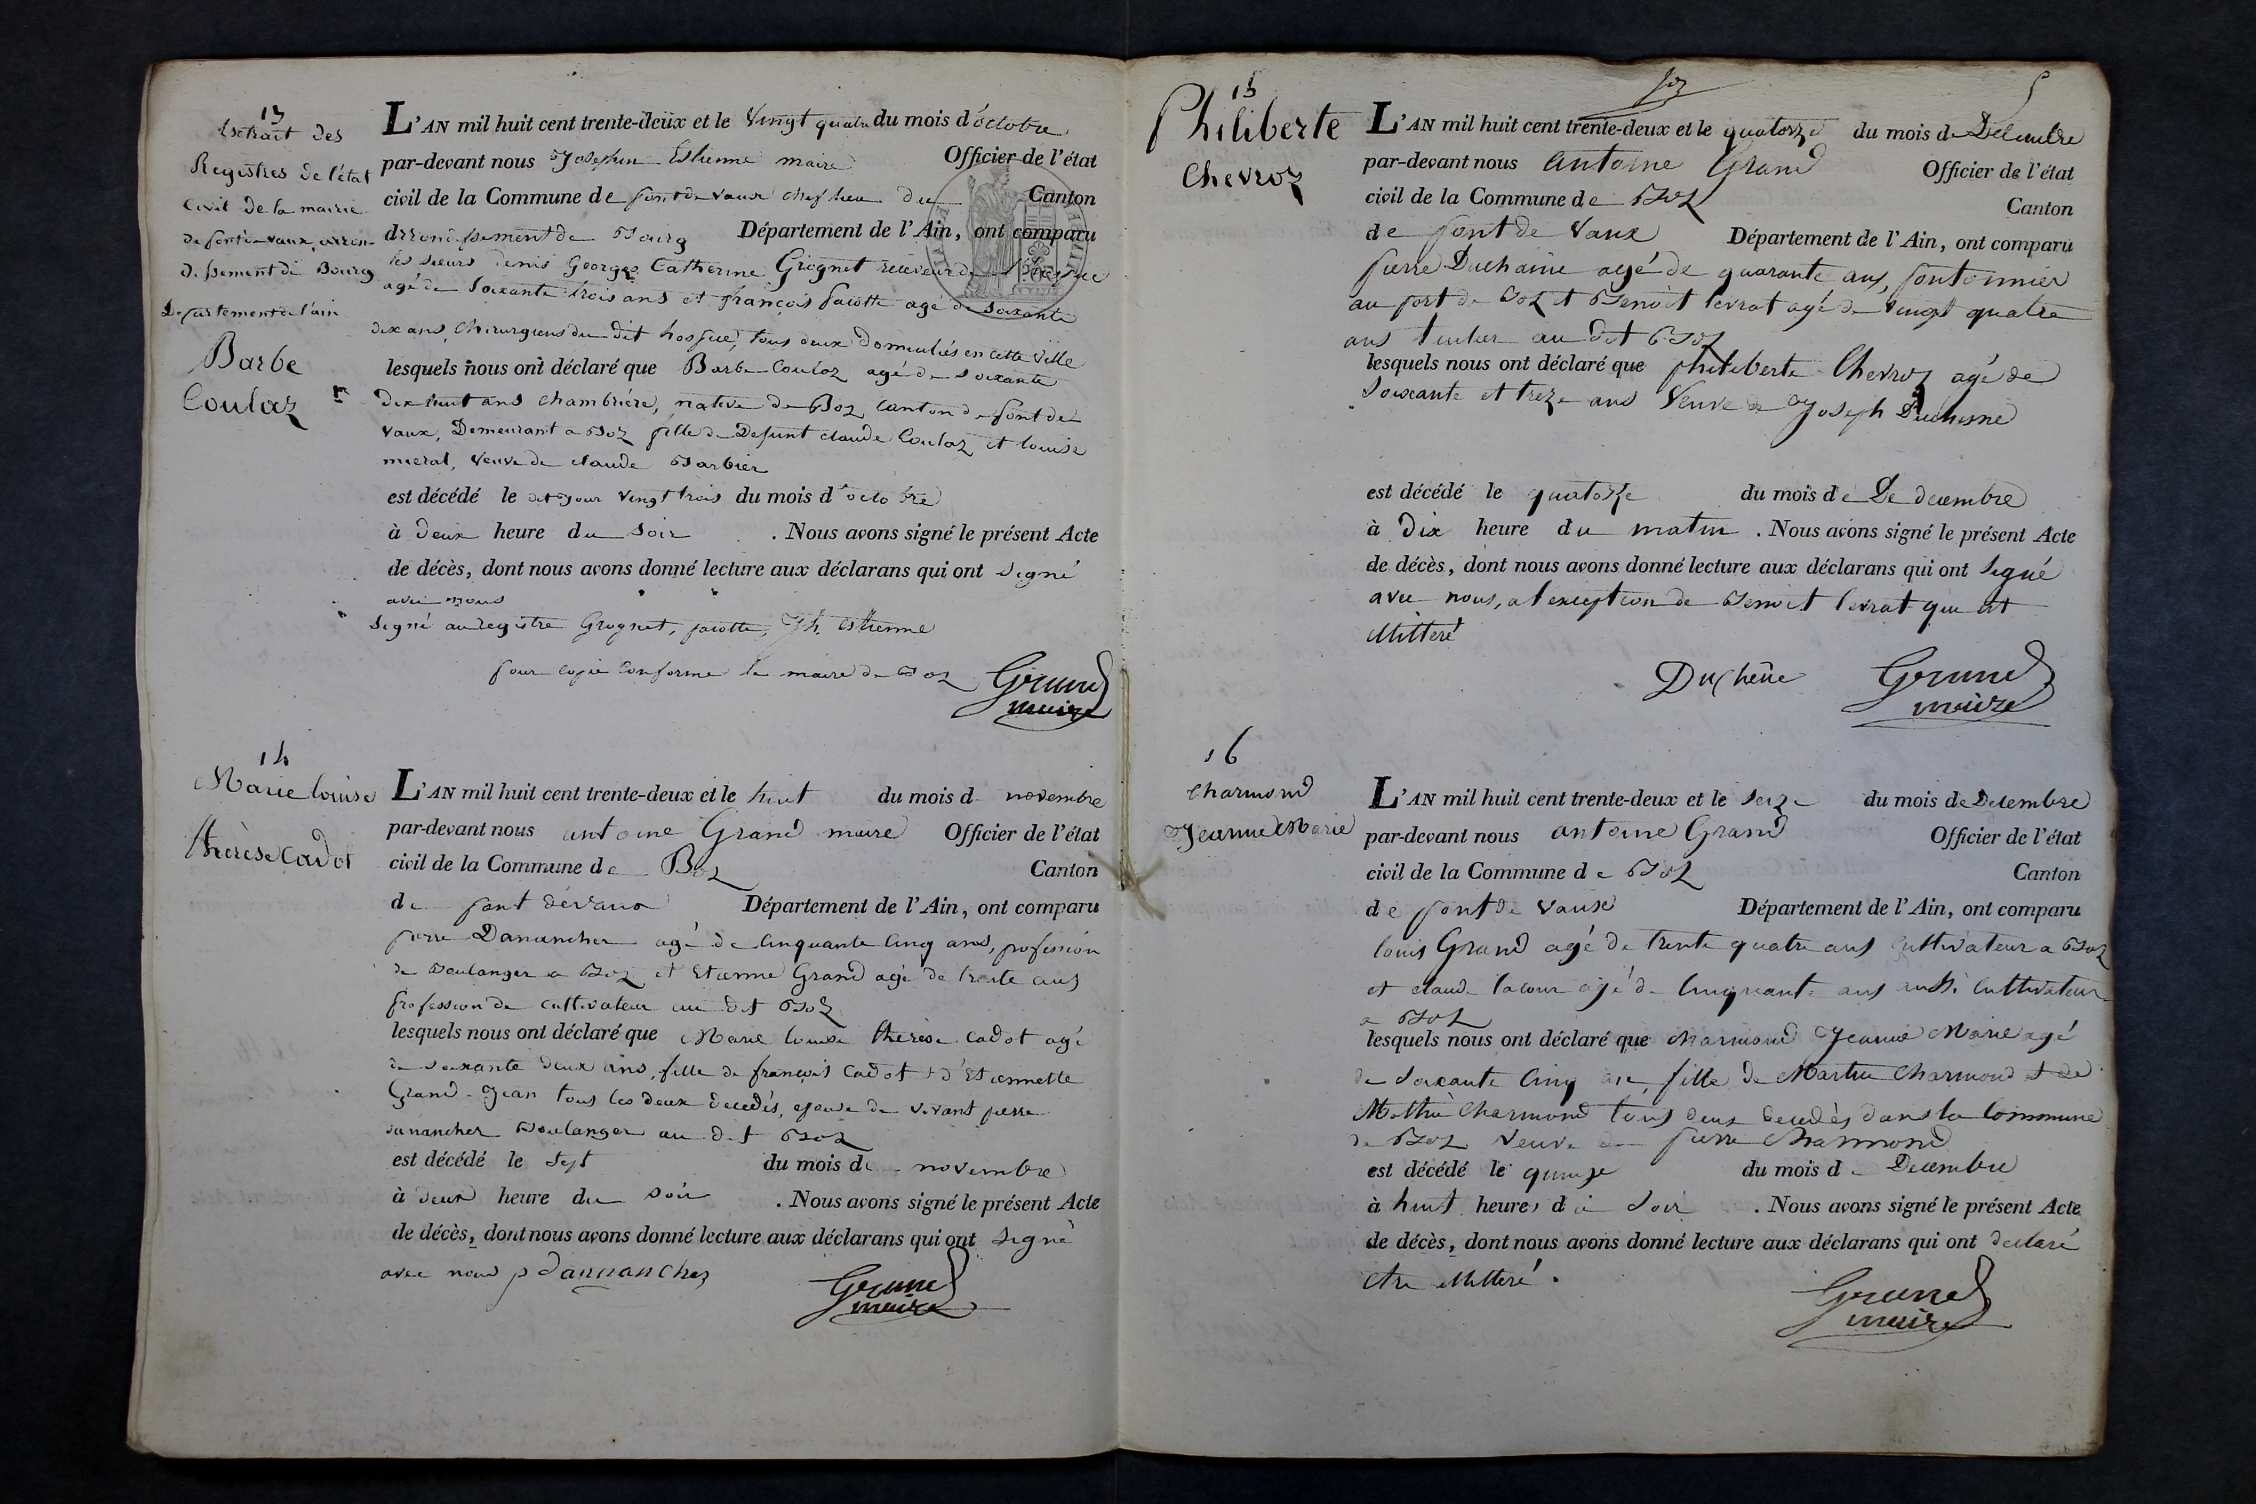 13
Extrait des
Registres de l'état
Civil de la mairie
de pontdevaux, arron-
dissement de Bourg
Département de l'ain
Barbe
Coulaz
L'AN mil huit cent trente-deux et le Vingt quatre du mois d'octobre
par-devant nous Estienne maire Officier de l'état
civil de la Commune de pont de vaux chef lieu du Canton
arrondissement de Bourg Département de l'Ain, ont comparu
les sieurs denis George Catherine Grognet receveur de l'hospice
agé de Soixante trois ans et françois pacotte agé de Soixante
dix ans, Chirurgiens du dit hospice, tous deux Domiciliés en cette Ville
lesquels nous ont déclaré que Barbe Coulaz agé de Soixante
Dix huit ans chambriére, native de Boz canton de pont de
vaux, Demeurant a Boz fille de Defunt claude Coulaz et louise
mierat, veuve de claude Barbier
est décédé le dit jour vingt trois du mois d'octobre
à deux heure du Soir . Nous avons signé le présent Acte
de décès, dont nous avons donné lecture aux déclarans qui ont Signé
avec nous
Signé au registre Grognet, pacotte, Jh. Estienne
pour copie Conforme le maire de Boz Grand
maire
14
Marie louise
thérèse Cadot
L'AN mil huit cent trente-deux et le huit du mois d novembre
par-devant nous antoine Grand maire Officier de l'état
civil de la Commune de Boz Canton
de pont Département de l'Ain, ont comparu
pierre Danancher agé de Cinquante Cinq ans, profession
de Boulanger a Boz et Etienne Grand agé de trente ans
profession de cultivateur au dit Boz
lesquels nous ont déclaré que Marie louise thérèse Cadot agé
de soixante deux ans, fille de françois Cadot et d'Etiennette
Grand-Jean tous les deux decedés, epouse de vivant pierre
danancher Boulanger au dit Boz
est décédé le Sept du mois de novembre
à deux heure du Soir . Nous avons signé le présent Acte
de décès, dont nous avons donné lecture aux déclarans qui ont Signé
avec nous p danancher Grand
maire
5
15
Philiberte
Chevroz
L'AN mil huit cent trente-deux et le quatorze du mois de Décembre
par-devant nous antoine Grand Officier de l'état
civil de la Commune de Boz Canton
de pont de Vaux Département de l'Ain, ont comparu
pierre Duchaine agé de quarante ans, pontonnier
au port de Boz et Benoit levrat agé de vingt quatre
ans au dit Boz
lesquels nous ont déclaré que philiberte Chevroz agé de
Soixante et treze ans Veuve de Joseph Duchesne
est décédé le quatorze du mois de De decembre
à Dix heure du matin . Nous avons signé le présent Acte
de décès, dont nous avons donné lecture aux déclarans qui ont Signé
avec nous, a l'exception de Benoit levrat qui est
illitteré
Duchêne Grand
maire
16
Charmond
Jeanne Marie
L'AN mil huit cent trente-deux et le Seize du mois de Decembre
par-devant nous antoine Grand Officier de l'état
civil de la Commune de Boz Canton
de pont de Vaux Département de l'Ain, ont comparu
louis Grand agé de trente quatre ans Cultivateur a Boz
et claude lacour agé de Cinquante ans aussi Cultivateur
a Boz
lesquels nous ont déclaré que Charmond Jeanne Marie agé
de Soixante Cinq an, fille de Charmond et de
Charmond tous deux decedés dans la Commune
de Boz veuve de pierre Charmond
est décédé le quinze du mois de Decembre
à huit heures du Soir . Nous avons signé le présent Acte
de décès, dont nous avons donné lecture aux déclarans qui ont declaré
etre illitteré.
Grand
maire